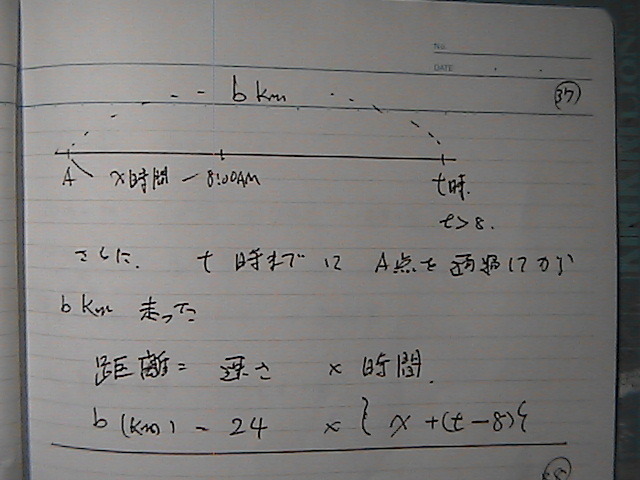 No.
DATE
37
b km
A x時間 8:00AM t時.
t>8.
さらに. t 時までに A点を通過してから
b km 走った
距離 = 速さ × 時間.
b (km) = 24 × { x + (t-8) }